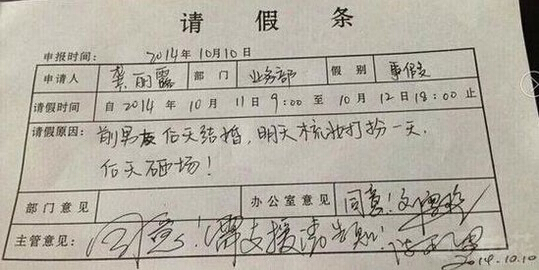 请假条
申报时间: 2014年10月10日
申请人 龚丽露 部门 业务部 假别 事假
请假时间 自2014年10月11日9:00至10月12日18:00止
请假原因: 前男友后天结婚,明天梳妆打扮一天,
后天砸场!
部门意见 办公室意见 同意!
主管意见: 同意!需支援请告知!
2014.10.10